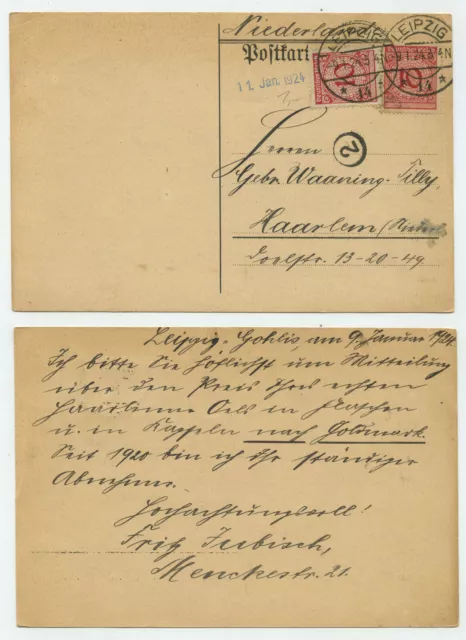 Niederlande
Postkart
LEIPZIG
LEIPZIG
9.1.24.
* 14 *
14 *
10
10
11. Jan. 1924
2
Herren
Gebr. Waaning-Tilly,
Haarlem (Niederl.
Doelstr. 13-20-49.
Leipzig-Gohlis, am 9. Januar 1924.
Ich bitte Sie höflichst um Mitteilung
über den Preis Ihres echten
Haarlemer Oels in Flaschen
u. in Kapseln nach Goldmark.
Seit 1920 bin ich Ihr ständiger
Abnehmer.
Hochachtungsvoll!
Fritz
Menckestr. 21.